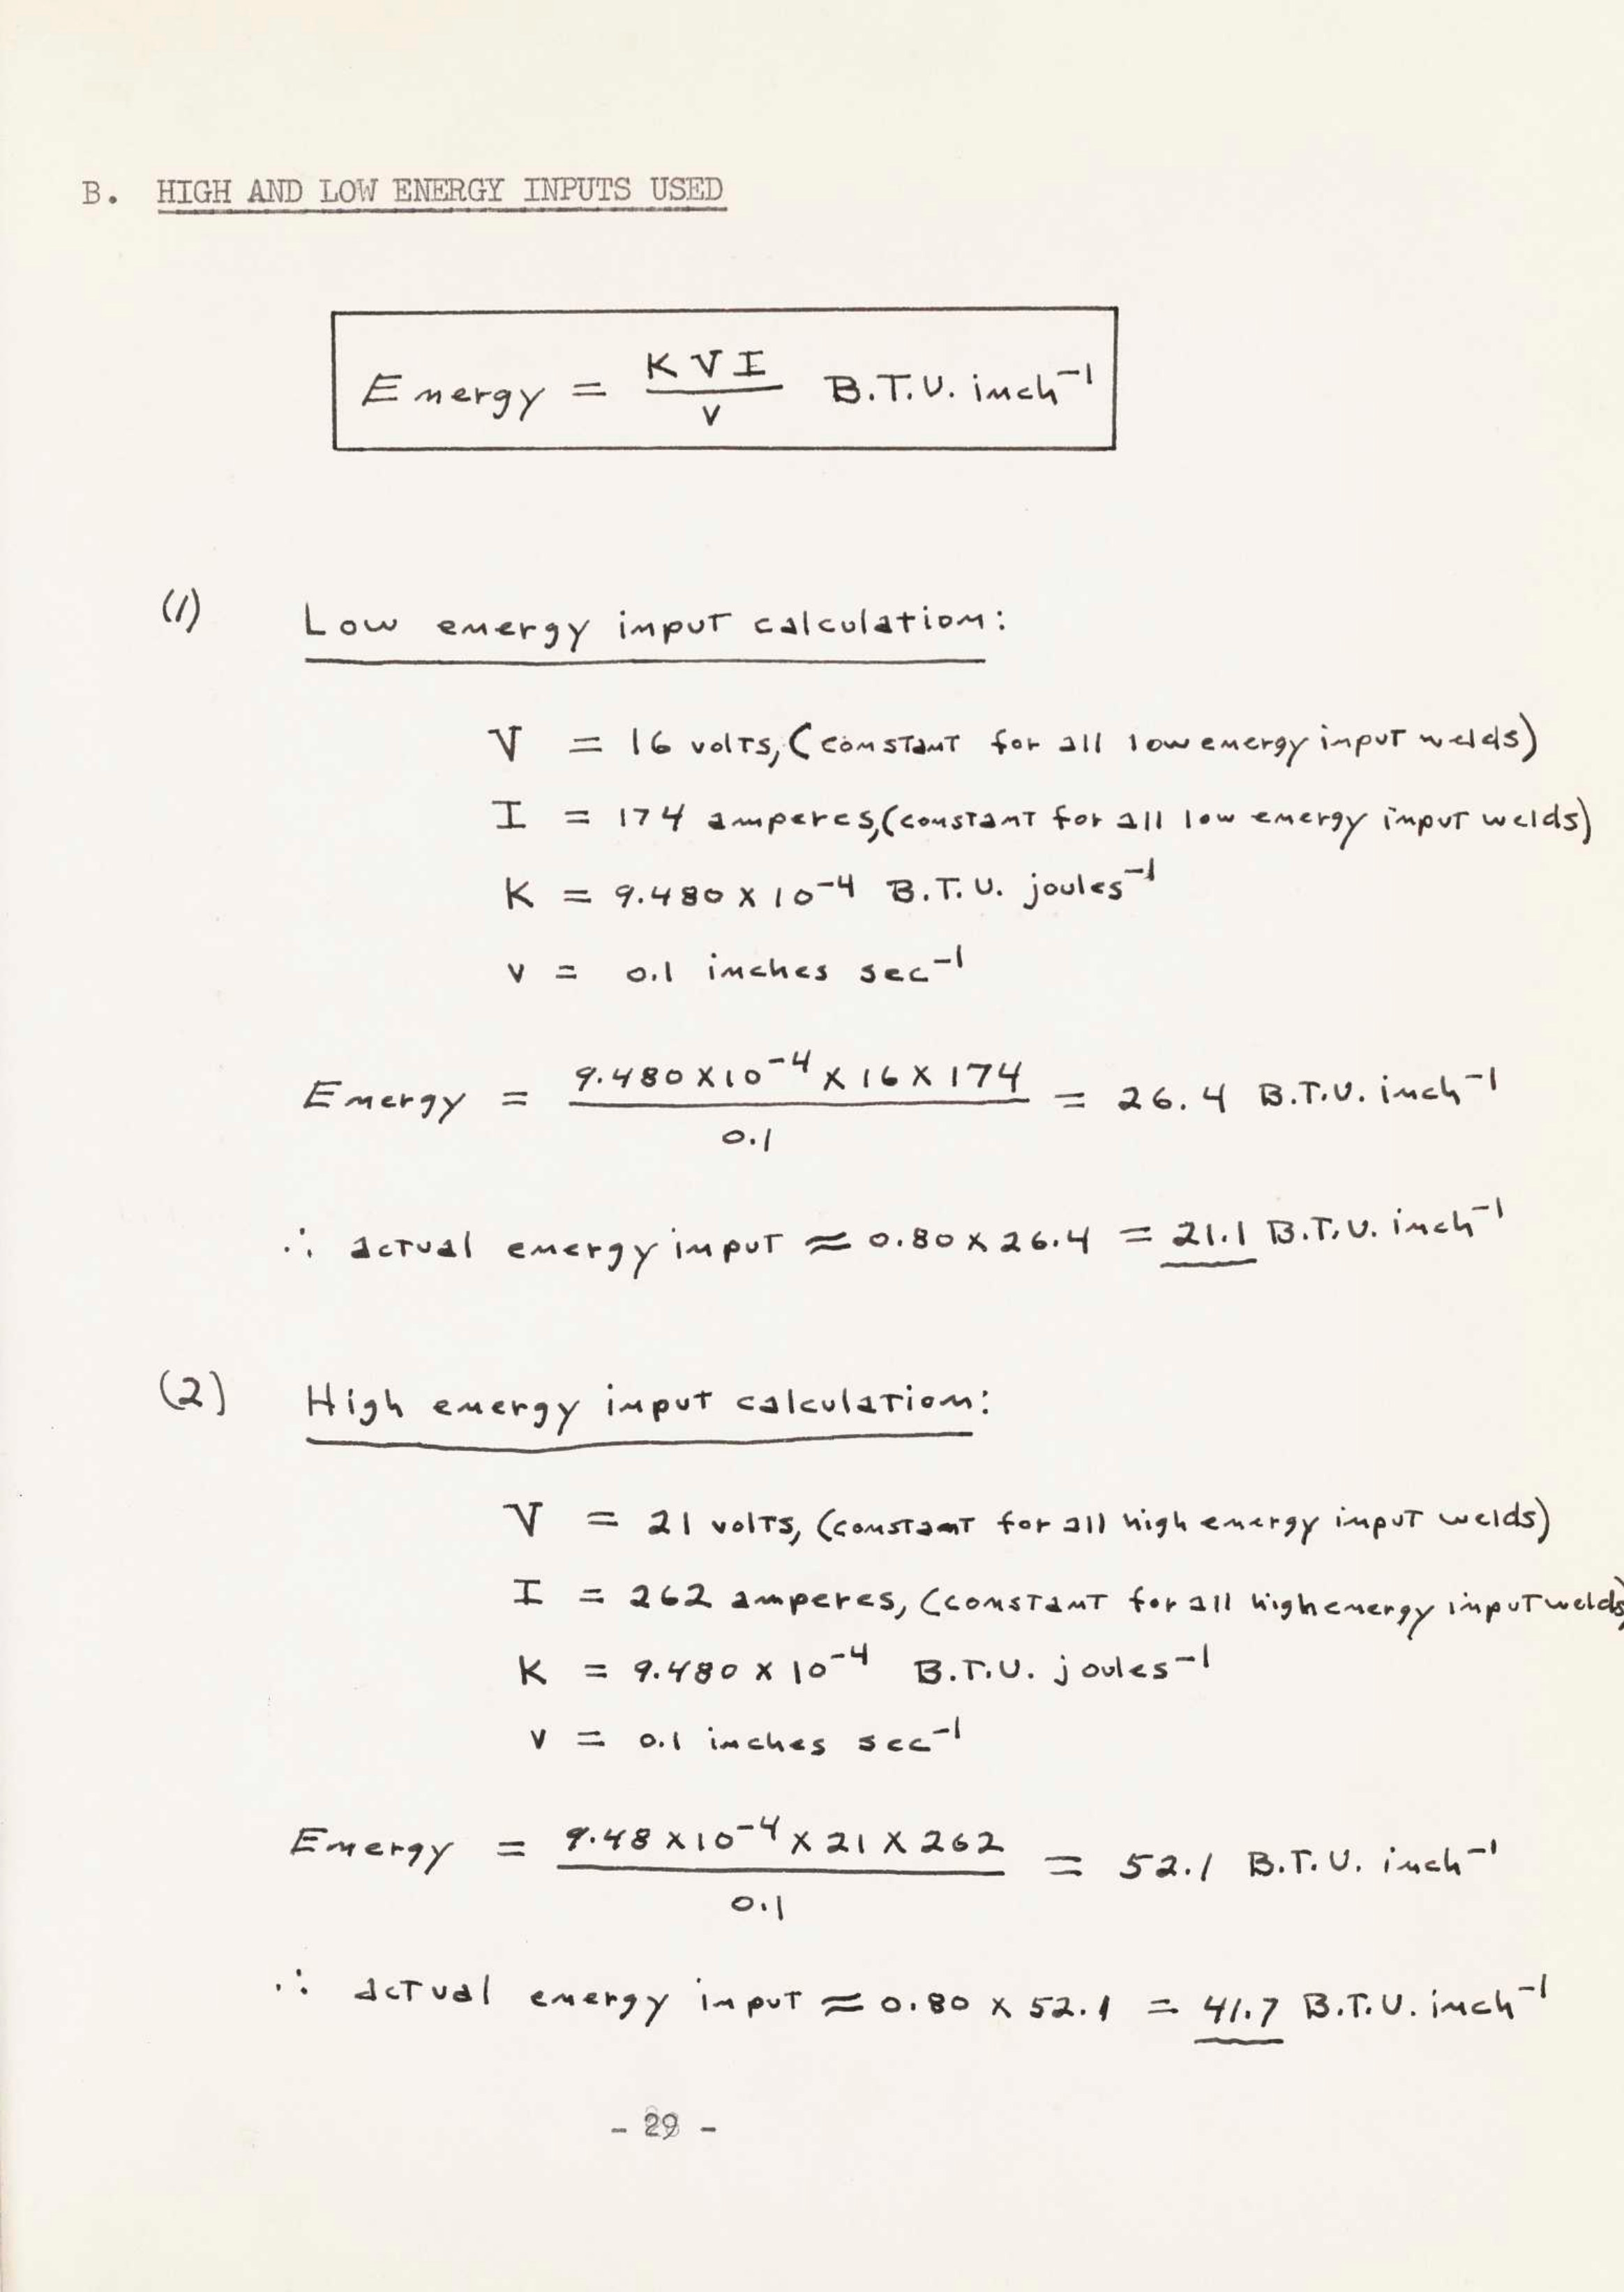 B. HIGH AND LOW ENERGY INPUTS USED
Energy = KVI / v B.T.U. inch⁻¹
(1) Low energy input calculation:
V = 16 volts, (constant for all low energy input welds)
I = 174 amperes, (constant for all low energy input welds)
K = 9.480 x 10⁻⁴ B.T.U. joules⁻¹
v = 0.1 inches sec⁻¹
Energy = 9.480 x 10⁻⁴ x 16 x 174 / 0.1 = 26.4 B.T.U. inch⁻¹
∴ actual energy input ≈ 0.80 x 26.4 = 21.1 B.T.U. inch⁻¹
(2) High energy input calculation:
V = 21 volts, (constant for all high energy input welds)
I = 262 amperes, (constant for all high energy input welds)
K = 9.480 x 10⁻⁴ B.T.U. joules⁻¹
v = 0.1 inches sec⁻¹
Energy = 9.48 x 10⁻⁴ x 21 x 262 / 0.1 = 52.1 B.T.U. inch⁻¹
∴ actual energy input ≈ 0.80 x 52.1 = 41.7 B.T.U. inch⁻¹
- 29 -